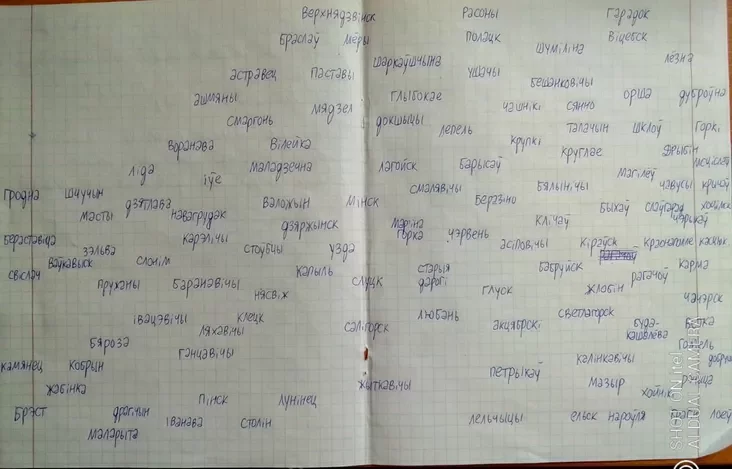 Верхнядзвінск Расоны Гарадок
Браслаў Мёры Полацк Віцебск
Шуміліна
Шаркаўшчына Лёзна
Астравец Паставы Ушачы
Бешанковічы
Ашмяны Мядзел Глыбокае Чашнікі Сянно Орша Дуброўна
Смаргонь Докшыцы Лепель Талачын Шклоў Горкі
Воранава Вілейка Крупкі Круглае Дрыбін
Ліда Іўе Маладзечна Лагойск Барысаў Магілёў Мсціслаў
Гродна Шчучын Дзятлава Валожын Мінск Смалявічы Беразіно Бялынічы Чавусы Крычаў
Масты Навагрудак Дзяржынск Клічаў Быхаў Слаўгарад Хоцімск
Бераставіца Карэлічы Мар'іна Горка Чэрвень Чэрыкаў
Зэльва Стоўбцы Узда Асіповічы Кіраўск Краснаполле Касцюк
Ваўкавыск Слонім Капыль Старыя Дарогі Бабруйск Рагачоў Карма
Свіслач Пружаны Баранавічы Нясвіж Слуцк Глуск Жлобін Чачэрск
Івацэвічы Клецк Любань Светлагорск
Ляхавічы Салігорск Акцябрскі Буда-Кашалёва Ветка
Бяроза Ганцавічы Гомель
Камянец Кобрын Калінкавічы Добруш
Жабінка Жыткавічы Петрыкаў Мазыр Рэчыца
Пінск Лунінец Хойнікі
Брэст Драгічын Іванава Столін Лельчыцы Ельск Нароўля Лоеў
Маларыта
SHOT ON itel
ALDUAL CAMERA